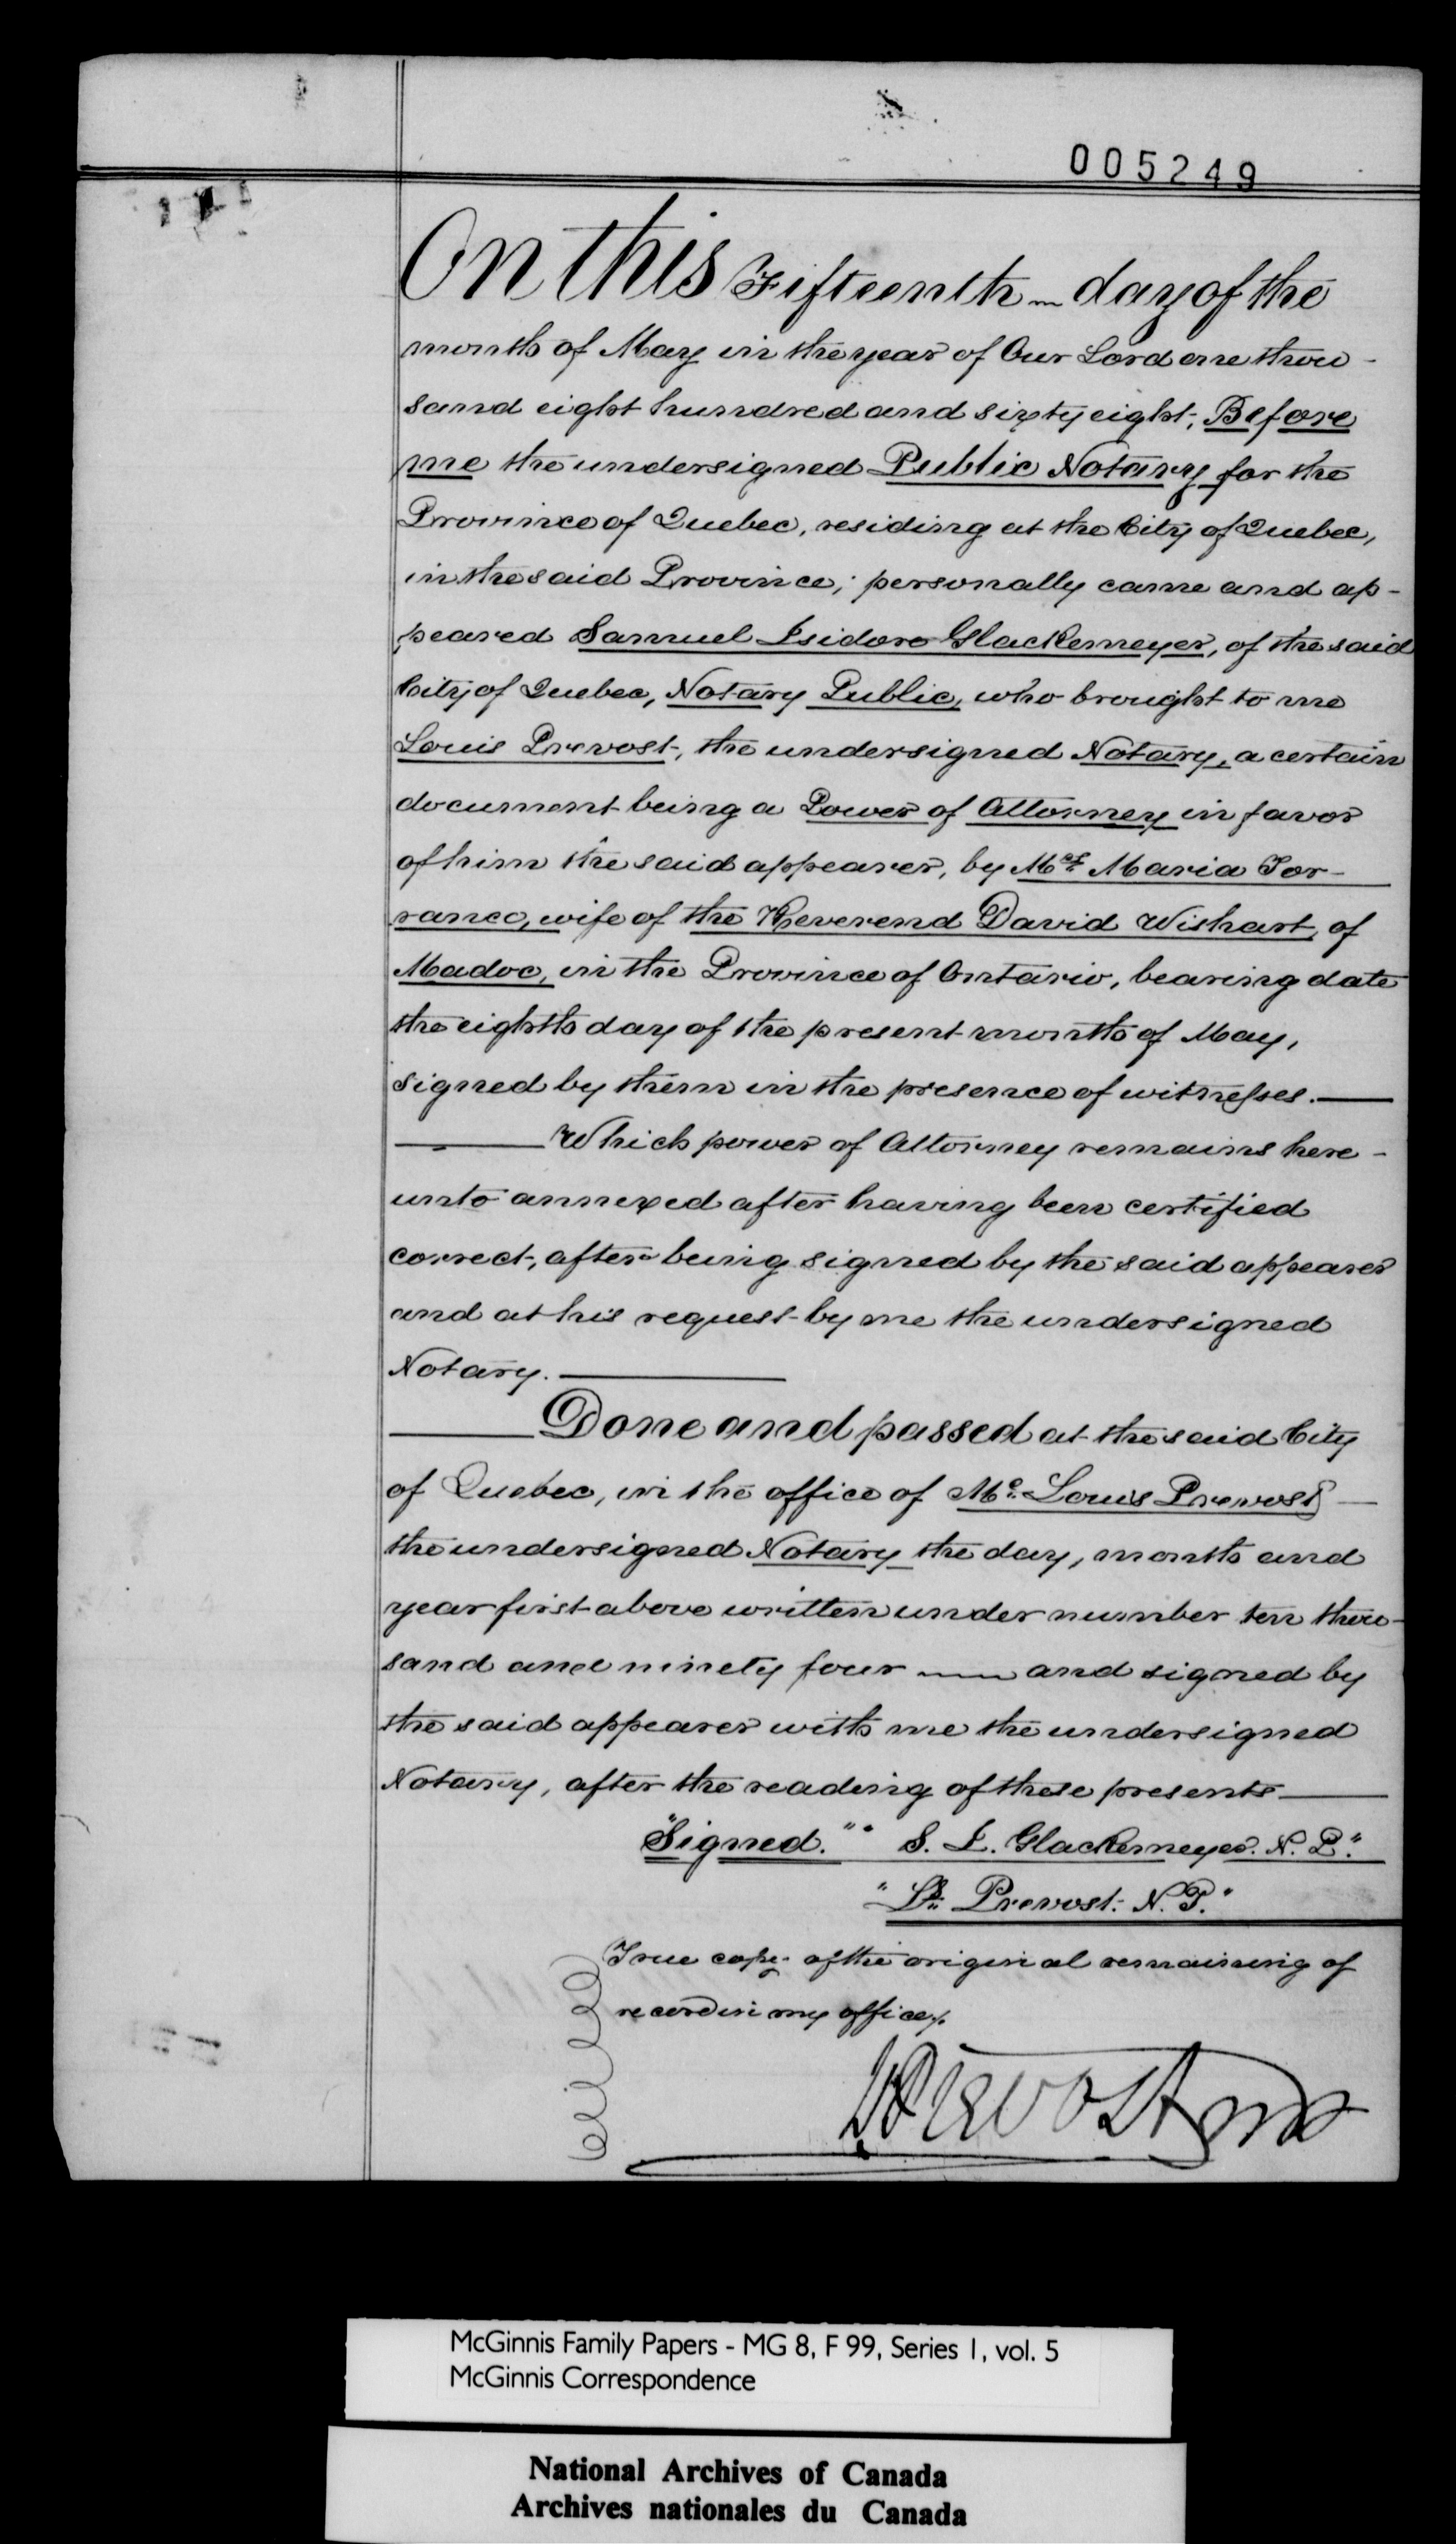 005249
On this Fifteenth day of the
month of May in the year of Our Lord one thou-
sand eight hundred and sixty eight; Before
me the undersigned Public Notary for the
Province of Quebec, residing at the City of Quebec,
in the said Province; personally came and ap-
peared Samuel Isidore Glackemeyer, of the said
City of Quebec, Notary Public, who brought to me
Louis Prevost, the undersigned Notary, a certain
document being a Power of Attorney in favor
of him the said appearer, by Mrs Maria Tor-
rance, wife of the Reverend David Wishart, of
Madoc, in the Province of Ontario, bearing date
the eighth day of the present month of May,
signed by them in the presence of witnesses.
Which power of Attorney remains here-
unto annexed after having been certified
correct, after being signed by the said appearer
and at his request by me the undersigned
Notary.
Done and passed at the said City
of Quebec, in the office of Me. Louis Prevost
the undersigned Notary the day, month and
year first above written under number ten thou-
sand and ninety four and signed by
the said appearer with me the undersigned
Notary, after the reading of these presents
"Signed." "S. I. Glackemeyer. N. P."
"Ls. Prevost. N. P."
True copy of the original remaining of
record in my office
LPrevost
McGinnis Family Papers - MG 8, F 99, Series 1, vol. 5
McGinnis Correspondence
National Archives of Canada
Archives nationales du Canada